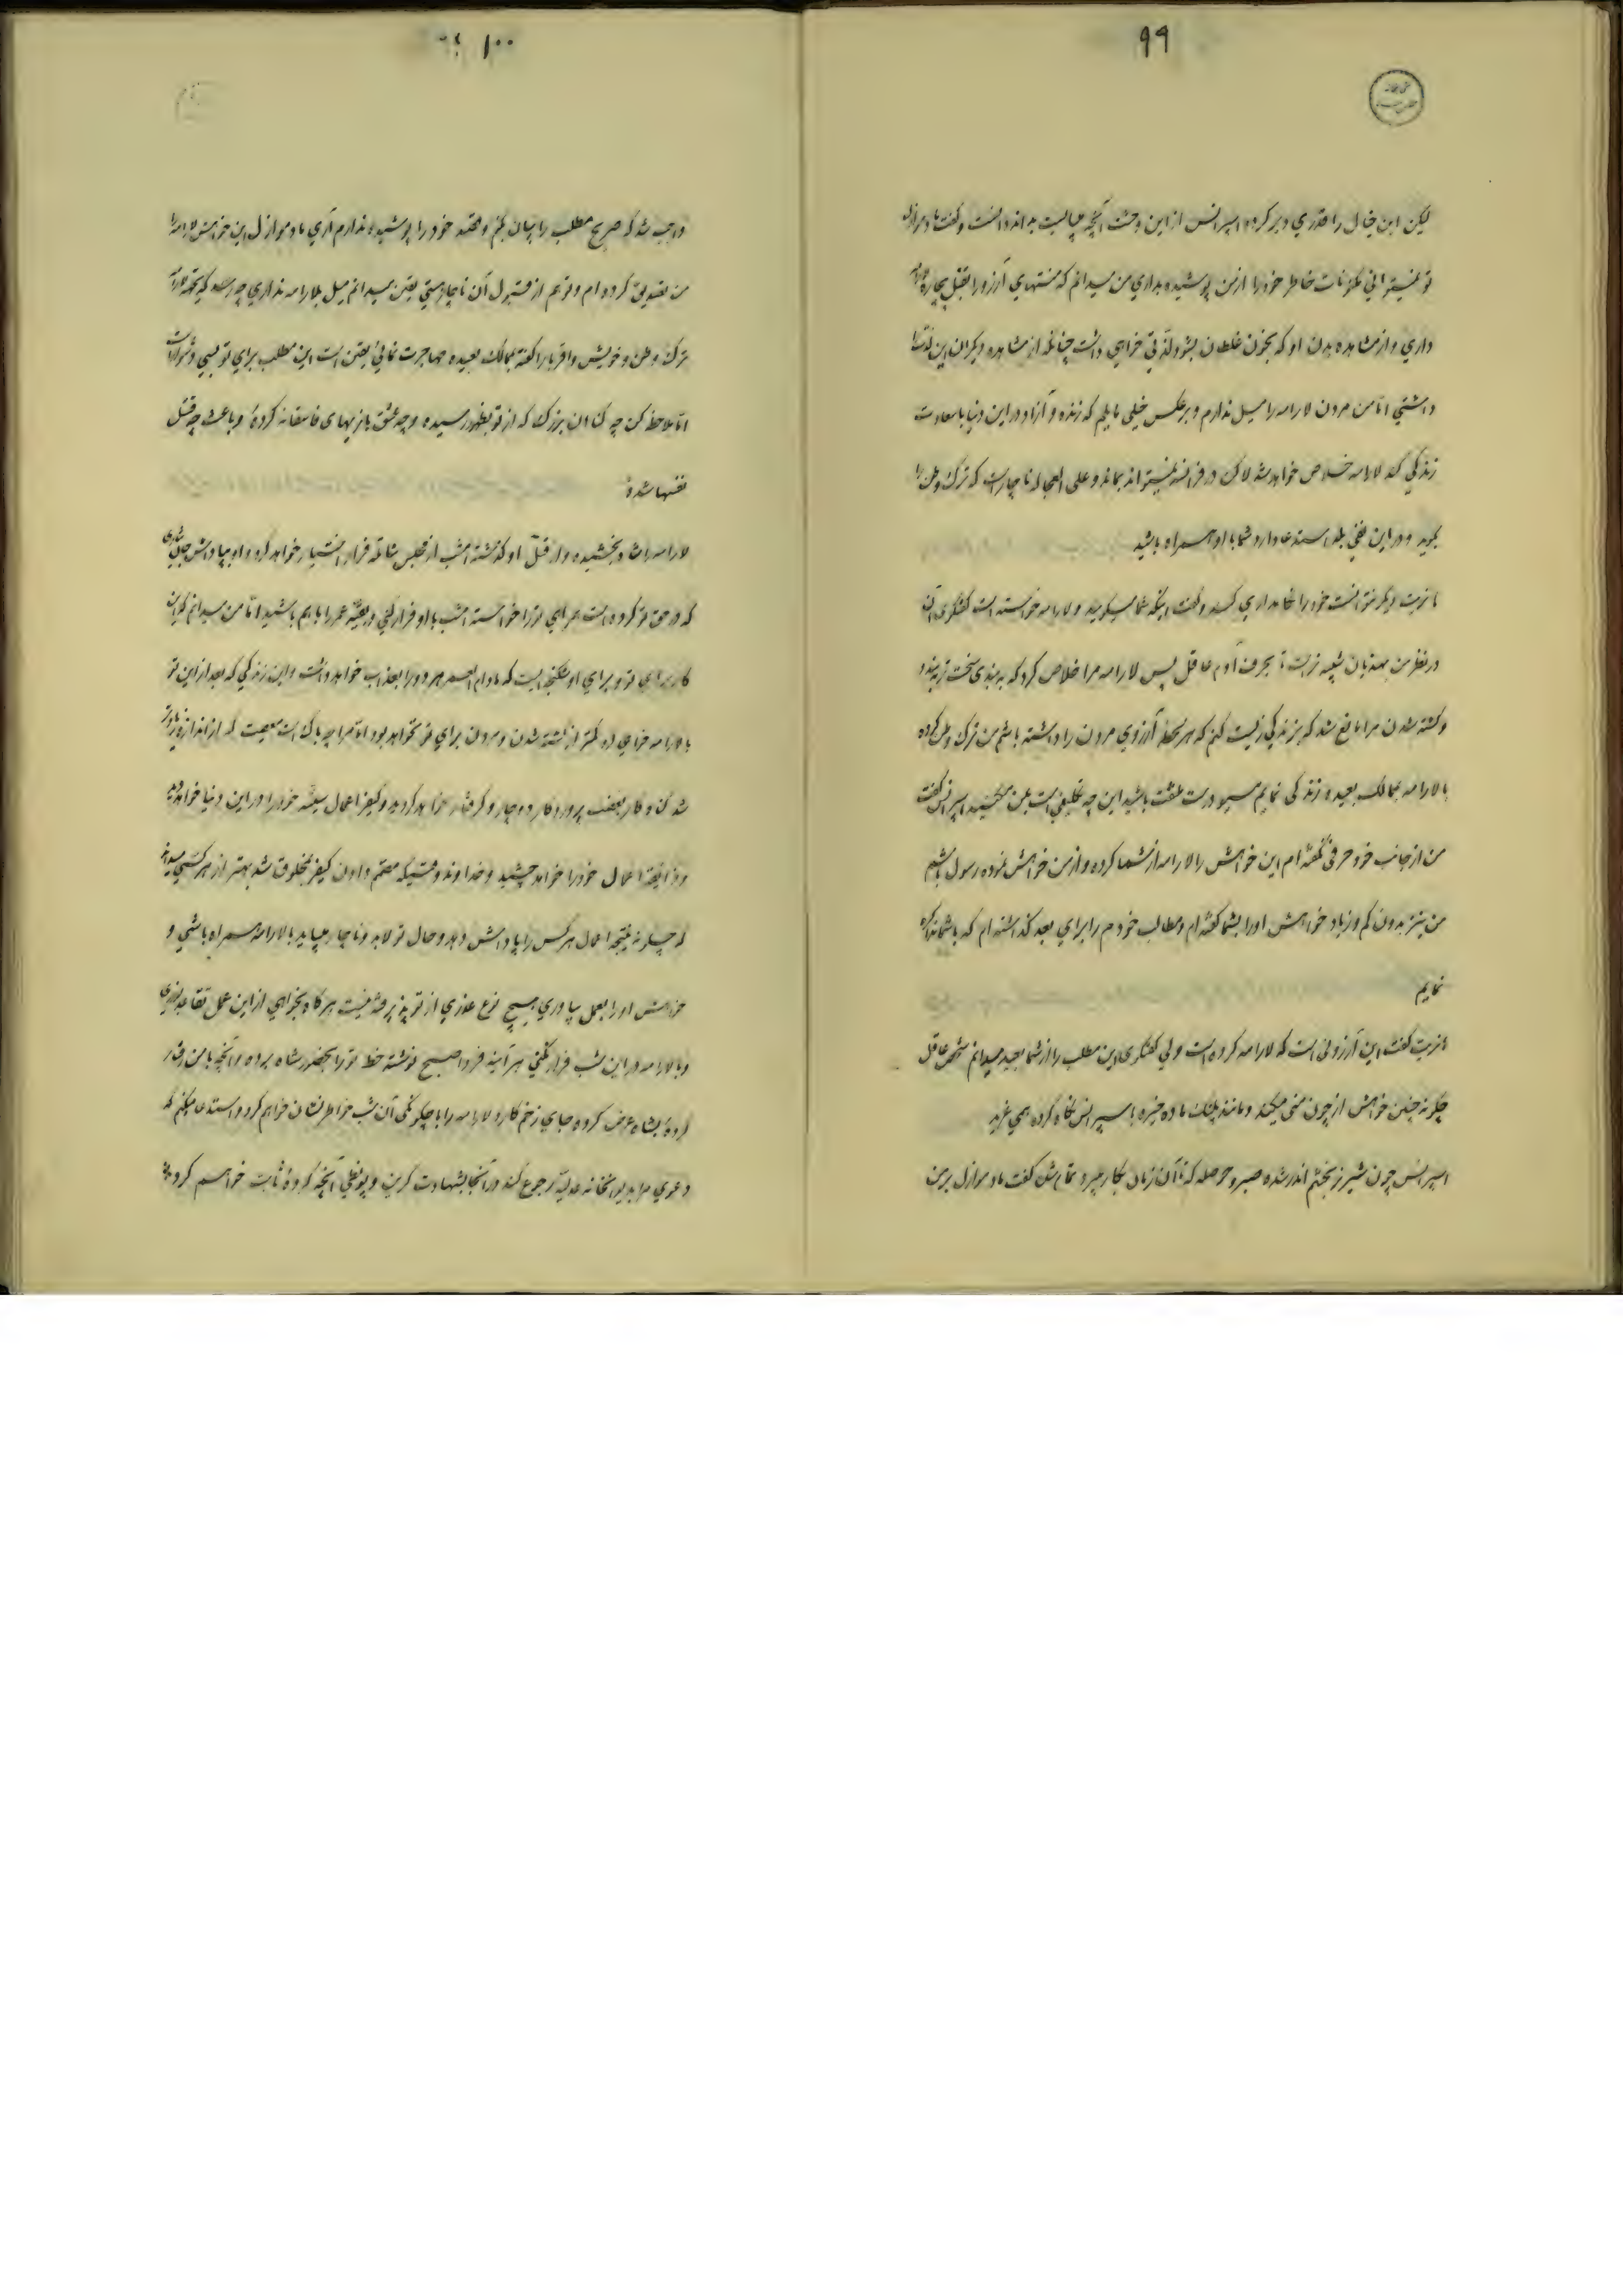 ۹۹
لیکن این خیال را قدری دیر کرده اسپرانس از این وحشت آنچه میبایست بداند دانست و گفت مادموازل
تو نمیتوانی مکنونات خاطر خود را از من پوشیده بداری من میدانم که منتهای آرزو را بقتل بیچاره
داری و از مشاهده بدن او که بخون غلطان بشود لذتی خواهی داشت چنانکه از مشاهده دیگران این لذت را
داشتی اما من مردن لارامه را میل ندارم و برعکس خیلی مایلم که زنده و آزاد در این دنیا با سعادت
زندگی کند لارامه خلاص خواهد شد لاکن در فرانسه نمیتواند بماند و علی العجاله ناچار است که ترک وطن را
بگوید و در این استدعا دارد شما با او همراه باشید
دیگر نتوانست خود را نگاهداری کند و گفت اینکه شما میگوئید و لارامه خواسته است گفتگوی آن
در نظر من بهذیان شبیه تر است تا بحرف آدم عاقل پس لارامه مرا خلاص کرد که به بندی سخت تر به بندد
و کشته شدن مرا مانع شد که بزندگی زیست کنم که هر لحظه آرزوی مردن را داشته باشم من ترک وطن کرده
با لارامه بممالک بعیده زندگی نمایم مسیو درست ملتفت باشید این چه تکلیفی است بمن میکنید اسپرانس گفت
من از جانب خود حرفی نگفته ام این خواهش را لارامه از شما کرده و از من خواهش نموده رسول باشم
من نیز بدون کم و زیاد خواهش او را بشما گفته ام و مطالب خودم را برای بعد گذاشته ام که با شما مذاکره
نمایم
گفت این آرزوئی است که لارامه کرده است ولی گفتگوی این مطلب را از شما بعید میدانم شخص عاقل
چگونه چنین خواهش از چون منی میکند و مانند پلنگ ماده خیره باسپرانس نگاه کرده همی غرید
اسپرانس چون شیر نر بخشم اندر شده صبر و حوصله که تا آن زمان بکار میبرد تمام شد گفت مادموازل بر من
۱۰۰
واجب شد که صریح مطلب را بیان کنم و قصد خود را پوشیده ندارم آری مادموازل این خواهش لارامه را
من تصدیق کرده ام و تو هم از قبول آن ناچار هستی یقین میدانم میل بلارامه نداری چه رسد که بجهة لارامه
ترک وطن و خویش و اقربا را گفته بممالک بعیده مهاجرت نمائی یقین است این مطلب برای تو بسی دشوار است
اما ملاحظه کن چه گناهان بزرگ که از تو بظهور رسیده و چه عشق بازیهای فاسقانه کردهٔ و باعث چه قتل
نفسها شدهٔ
لارامه را شاه بخشیده و از قتل او گذشته امشب از محبس شاتله فرار اختیار خواهد کرد و او بپاداش جان نثاری
که در حق تو کرده است همراهی تو را خواسته امشب با او فرار کنی و بقیهٔ عمر را باهم باشید اما من میدانم که این
کار برای تو و برای او شکنجه ایست که مادام العمر هر دو را بعذاب خواهد داشت و این زندگی که بعد از این تو
با لارامه خواهی کرد کمتر از کشته شدن و مردن برای تو نخواهد بود اما مرا چه باک است معصیت که از اندازه زیادتر
شد گناه کار بغضب پروردگار دوچار و گرفتار خواهد گردید و کیفر اعمال سیئه خود را در این دنیا خواهد دید
و ذایقهٔ اعمال خود را خواهد چشید و خداوند وقتیکه مصمم دادن کیفر بمخلوق شد بهتر از هر کسی میداند
که چگونه نتیجهٔ اعمال هر کس را پاداش دهد و حال تو لابد و ناچار میباید با لارامه همراه باشی و
خواهش او را بعمل بیاوری هیچ نوع عذری از تو پذیرفته نیست هر گاه بخواهی از این عمل تقاعد ورزی
و با لارامه در این شب فرار نکنی هر آینه فردا صبح نوشته خط تو را بحضور شاه برده و آنچه با من رفتار
کردهٔ بشاه عرض کرده جای زخم کارد لارامه را با چگونگی آن شب خاطرنشان خواهم کرد و استدعا میکنم که
دعوی مرا بدیوانخانه عدلیه رجوع کند و در آنجا بشهادت و آنچه کردهٔ ثابت خواهم کرد